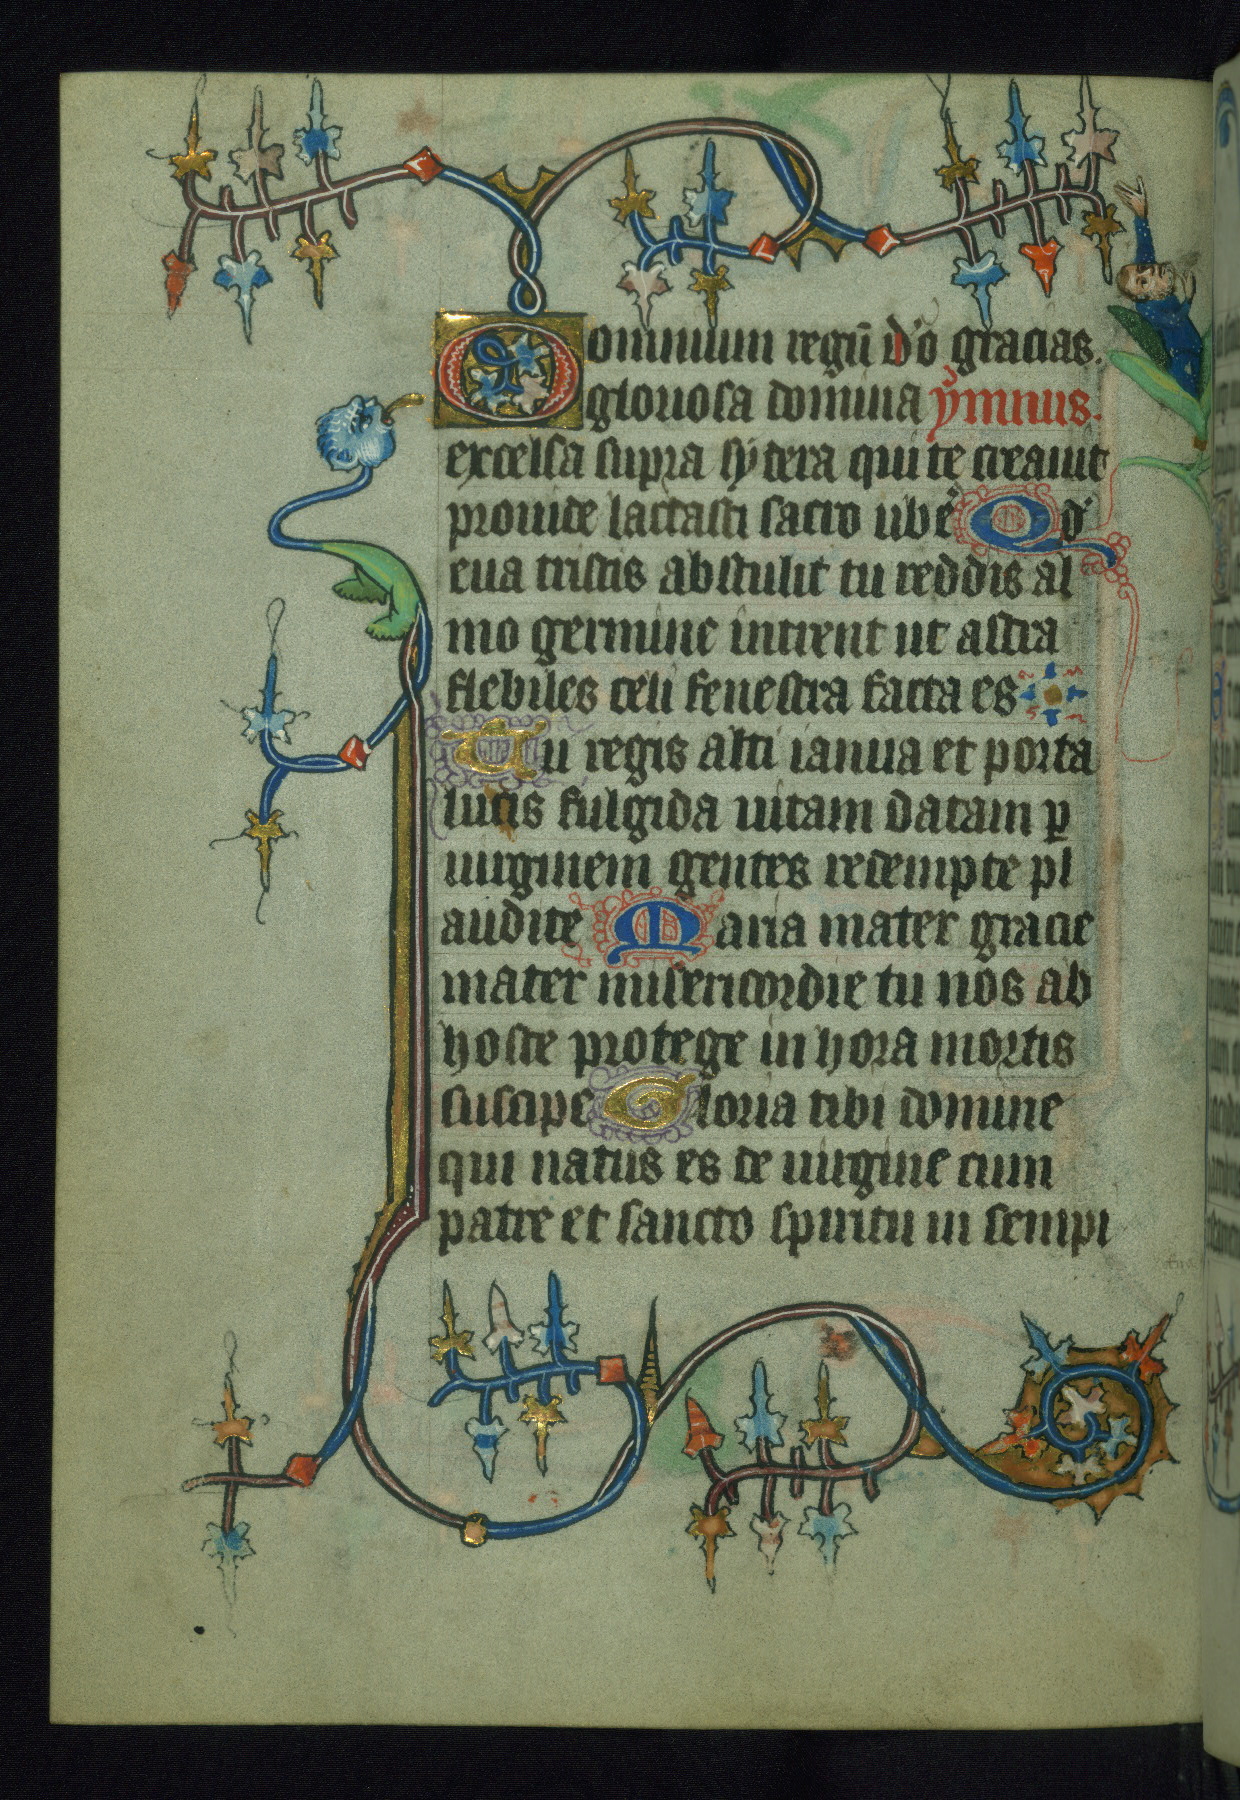 ominum regū d'o gracias.
O gloriosa domina ymnus.
excelsa supra sydera qui te creauit
prouide lactasti sacro ube Quod
eua tristis abstulit tu reddis al
mo germine intrent ut astra
flebiles celi fenestra facta es
Tu regis alti ianua et porta
lucis fulgida uitam datam p
uirginem gentes redempte pl
audite Maria mater gracie
mater misericordie tu nos ab
hoste protege in hora mortis
suscipe Gloria tibi domine
qui natus es de uirgine cum
patre et sancto spiritu in sempi